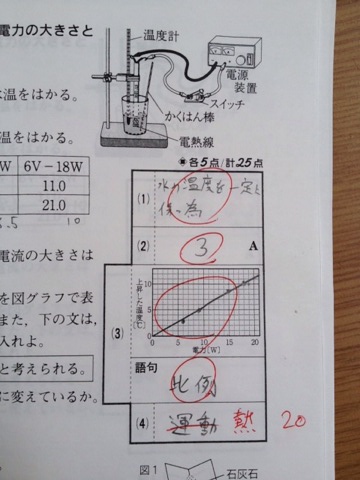 電力の大きさと
温度計
電源
装置
スイッチ
かくはん棒
電熱線
水温をはかる。
温をはかる。
W 6V－18W
11.0
21.0
8.5 10
電流の大きさは
を図グラフで表
また、下の文は,
入れよ。
と考えられる。
に変えているか。
各5点/計25点
(1) 水の温度を一定に
保つ為
(2) 3 A
(3)
上昇した温度[℃]
10
5
0
0 5 10 15 20
電力[W]
語句
比例
(4) 運動 熱 20
図1
石灰石